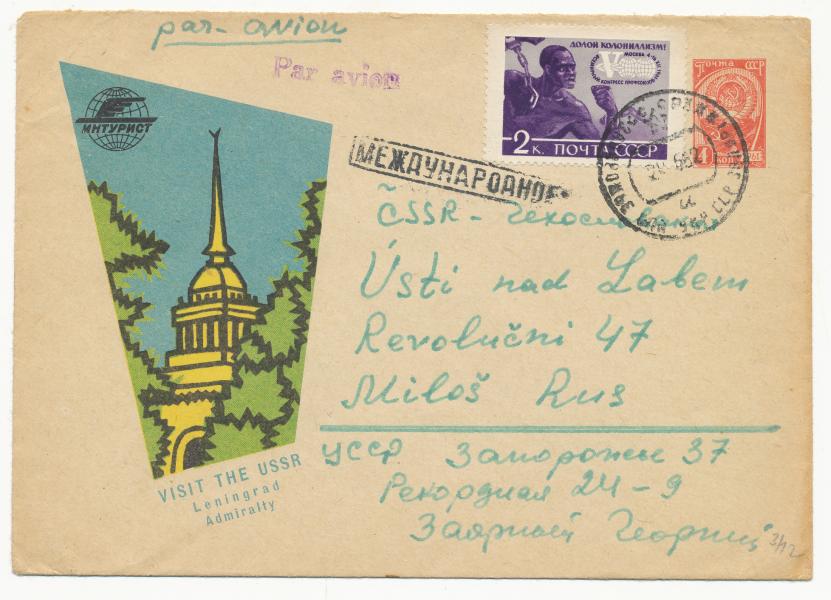 par avion
Par avion
ИНТУРИСТ
ДОЛОЙ КОЛОНИАЛИЗМ!
МОСКВА 4-16 XII 1961
V
КОНГРЕСС ПРОФСОЮЗОВ
2 К. ПОЧТА СССР
ПОЧТА СССР
4 КОП
МЕЖДУНАРОДНОЕ
ČSSR - Чехословакия
Ústi nad Labem
Revoluční 47
Miloš Rus
УССР Запорожье 37
Рекордная 24-9
Заярный Георгий
3/12
VISIT THE USSR
Leningrad
Admiralty